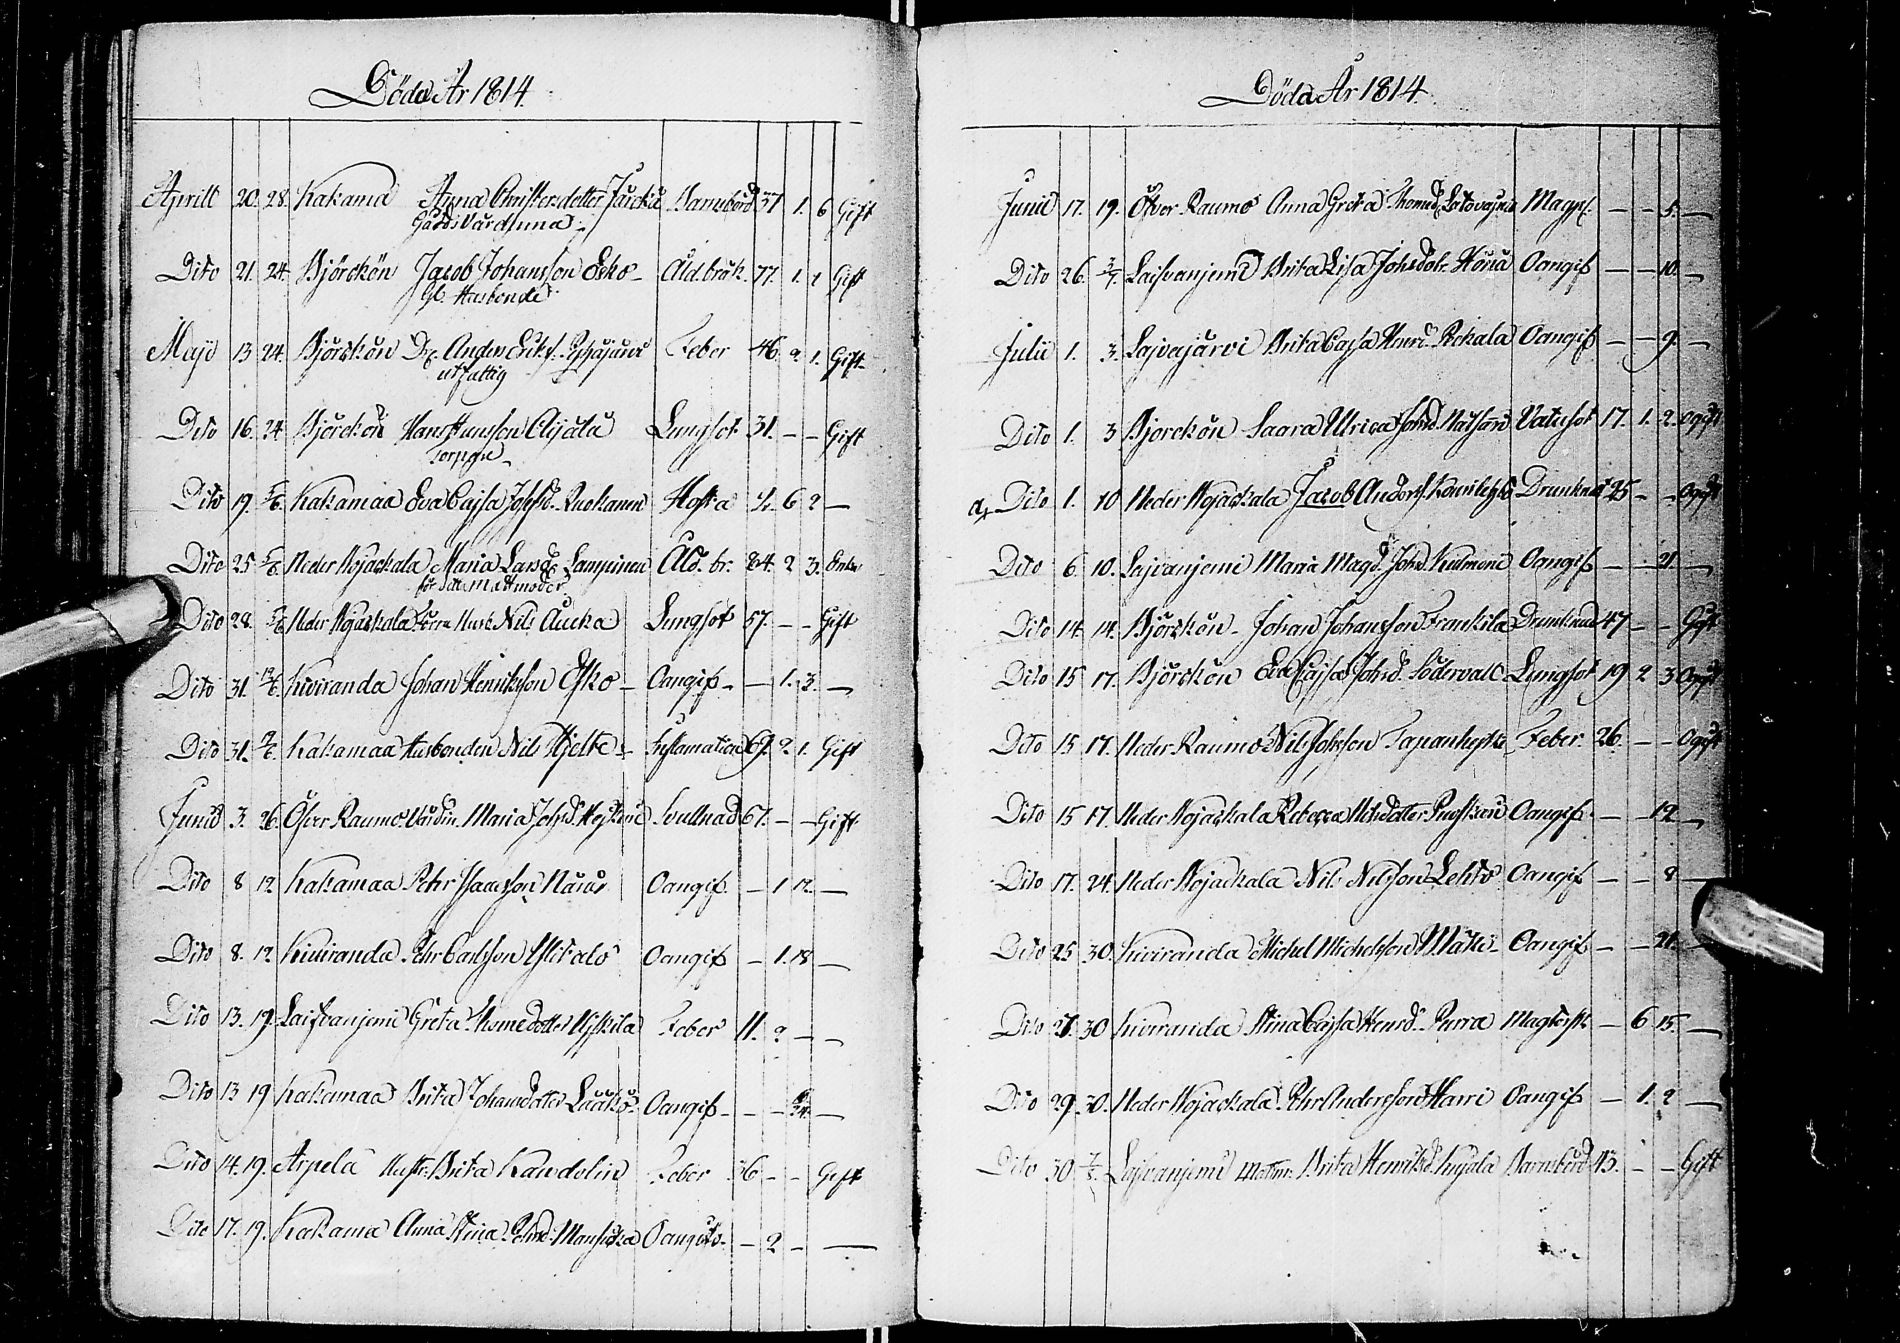 Döda År 1814.
Aprill 20. 28. Kakama Anna Christersdotter Barnsbörd 37 1. 6 Gift
Gårds Värdinna
Dito 21. 24. Björckön Jacob Johansson Esko Åld. bräk. 77. 1. 1 Gift
Gl. Husbonde
Maji 13 24. Björckön Anders Feber 46. 2. 1. Gift
utfattig
Dito 16. 24 Björckön Hans Hansson Alijälä Lungsot 31. - - Gift
Dito 19. 5/6. Kakamaa Eva Cajsa Johsd. Ruokanen Hosta 4. 6 2 —
Dito 25 5/6. Neder Wojackala Maria Larsd. Lampinen Åld. br. 84. 2 3. Enka
Dito 28. 5/6 Neder Wojackala Nils Aucka Lungsot 57. - - Gift
Dito 31. 12/6. Kiviranda Johan Henriksson Esko Oangif. - — 1. 3. —
Dito 31. Kakamaa Husbonden Nils Hjelte Inflamation 69. 2. 1. Gift
Junii 3. 26. Öfver Raumo Värdin. Maria Johsd. Svullnad 67. - - Gift
Dito 8 12 Kakamaa Petr Isaacsson Närä Oangif. - 1 12. —
Dito 8. 12 Kiviranda Pehr Carlsson Oangif - 1. 18 —
Dito 13. 19. Laifvanjemi Greta Thomedotter Feber 11. 2 — —
Dito 13 19 Kakamaa Brita Johansdotter Laakso Oangif. - — - —
Dito 14. 19. Arpela Hustr. Brita Kandelin Feber 36 - - Gift
Dito 17. 19. Kakama Anna Stina Oangifv. - 2 - —
Döda År 1814.
Junii 17. 19. Öfver Raumo Anna Greta Thomsd. - - 5. —
Dito 26. 3/7. Laifvanjemi Brita Lisa Johsdotr Oangif — — 10. —
Julii 1. 3. Lajvajärvi Brita Cajsa Henrd. Rekala Oangif - — 9. —
Dito 1. 3 Björckön Saara Ulrica Johsd. Vatusot 17. 1. 2. Ogift
Dito 1. 10 Neder Wojackala Jacob Anders. Drunknat 25 - - Ogift
Dito 6. 10. Lajvanjemi Maria Magd. Johsd. Oangif — - 21 —
Dito 14. 14. Björckön Johan Johansson Frankila Drunknad 47 — — Gift
Dito 15 17. Björckön Eva Cajsa Johsd. Södervall Lungsot 19 2 3 Ogift
Dito 15 17. Neder Raumo Nils Johsson Feber. 26 — - Ogift
Dito 15 17. Neder Wojackala Rebecca Nilsdotter Oangif. — — 12 —
Dito 17. 24. Neder Wojackala Nils Nilsson Lehto Oangif — — 8 —
Dito 25 30. Kiviranda Michel Michelsson Oangif — — 21. —
Dito 27. 30 Kiviranda Stina Cajsa Henrd. Purra — 6 15. —
Dito 29. 30. Neder Wojackala Pehr Andersson Harri Oangif — 1. 2 —
Dito 30 Laifvanjemi Brita Henriksd. Barnsbörd 43. - — Gift